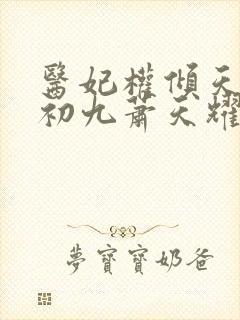 醫妃權傾天
初九蕭天耀
夢寶寶奶爸